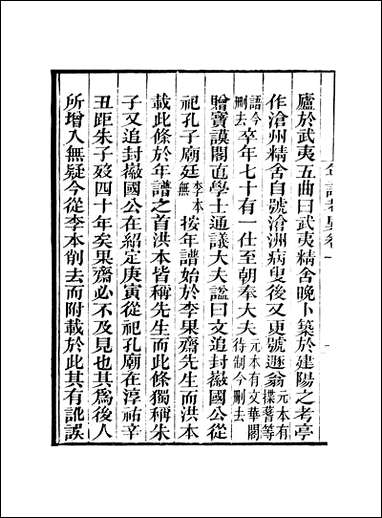 廬於武夷五曲曰武夷精舍晚卜築於建陽之考亭
作滄州精舍自號滄洲病叟後又更號遯翁元本有揲蓍等
語今刪去卒年七十有一仕至朝奉大夫元本有文華閣待制今刪去
贈寶謨閣直學士通議大夫諡曰文追封徽國公從
祀孔子廟廷李本無按年譜始於李果齋先生而洪本
載此條於年譜之首洪本皆稱先生而此條獨稱朱
子又追封徽國公在紹定庚寅從祀孔廟在淳祐辛
丑距朱子歿四十年矣果齋必不及見也其為後人
所增入無疑今從李本削去而附載於此其有訛誤